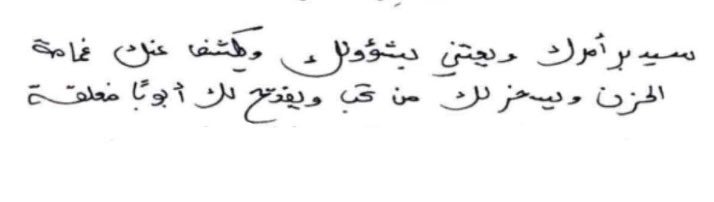 سيدبر أمرك ويعتني بشؤونك ويكشف عنك غمامة
الحزن ويسخر لك من تحب ويفتح لك أبوبًا مغلقة